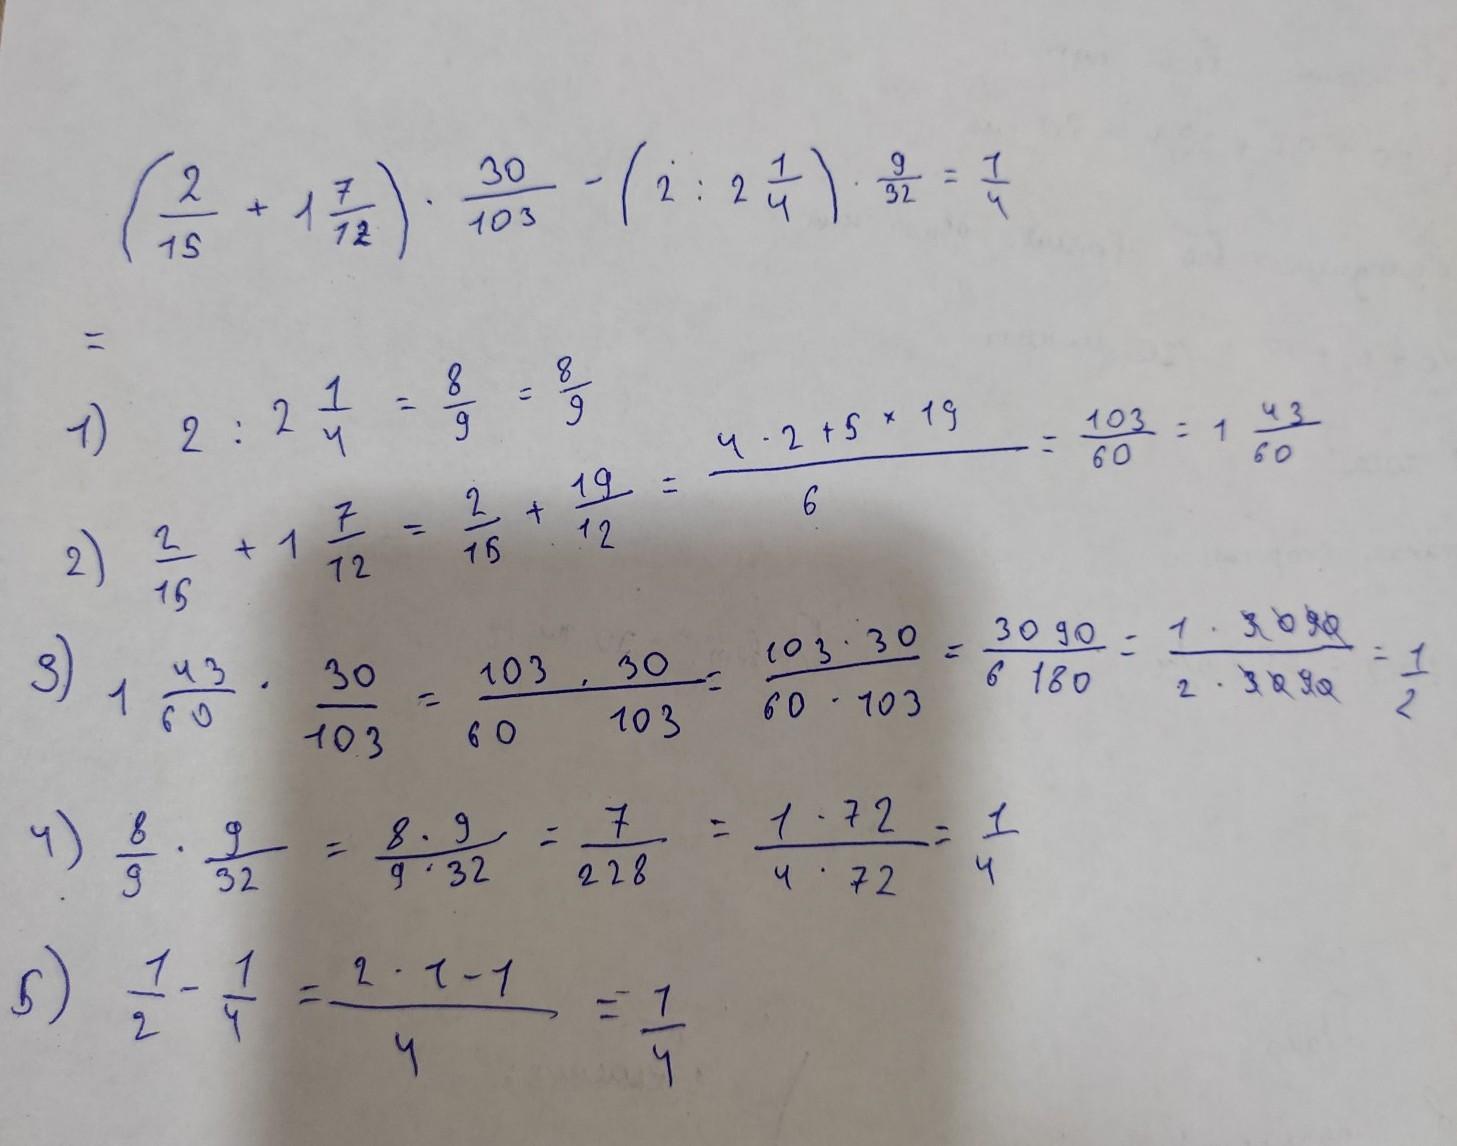 (2/15 + 1 7/12) · 30/103 - (2 : 2 1/4) · 9/32 = 1/4
=
1) 2 : 2 1/4 = 8/9 = 8/9
2) 2/15 + 1 7/12 = 2/15 + 19/12 = 4 · 2 + 5 × 19/6 = 103/60 = 1 43/60
3) 1 43/60 · 30/103 = 103/60 · 30/103 = 103 · 30/60 · 103 = 3090/6180 = 1 · 3090/2 · 3090 = 1/2
4) 8/9 · 9/32 = 8 · 9/9 · 32 = 7/228 = 1 · 72/4 · 72 = 1/4
5) 1/2 - 1/4 = 2 · 1 - 1/4 = 1/4